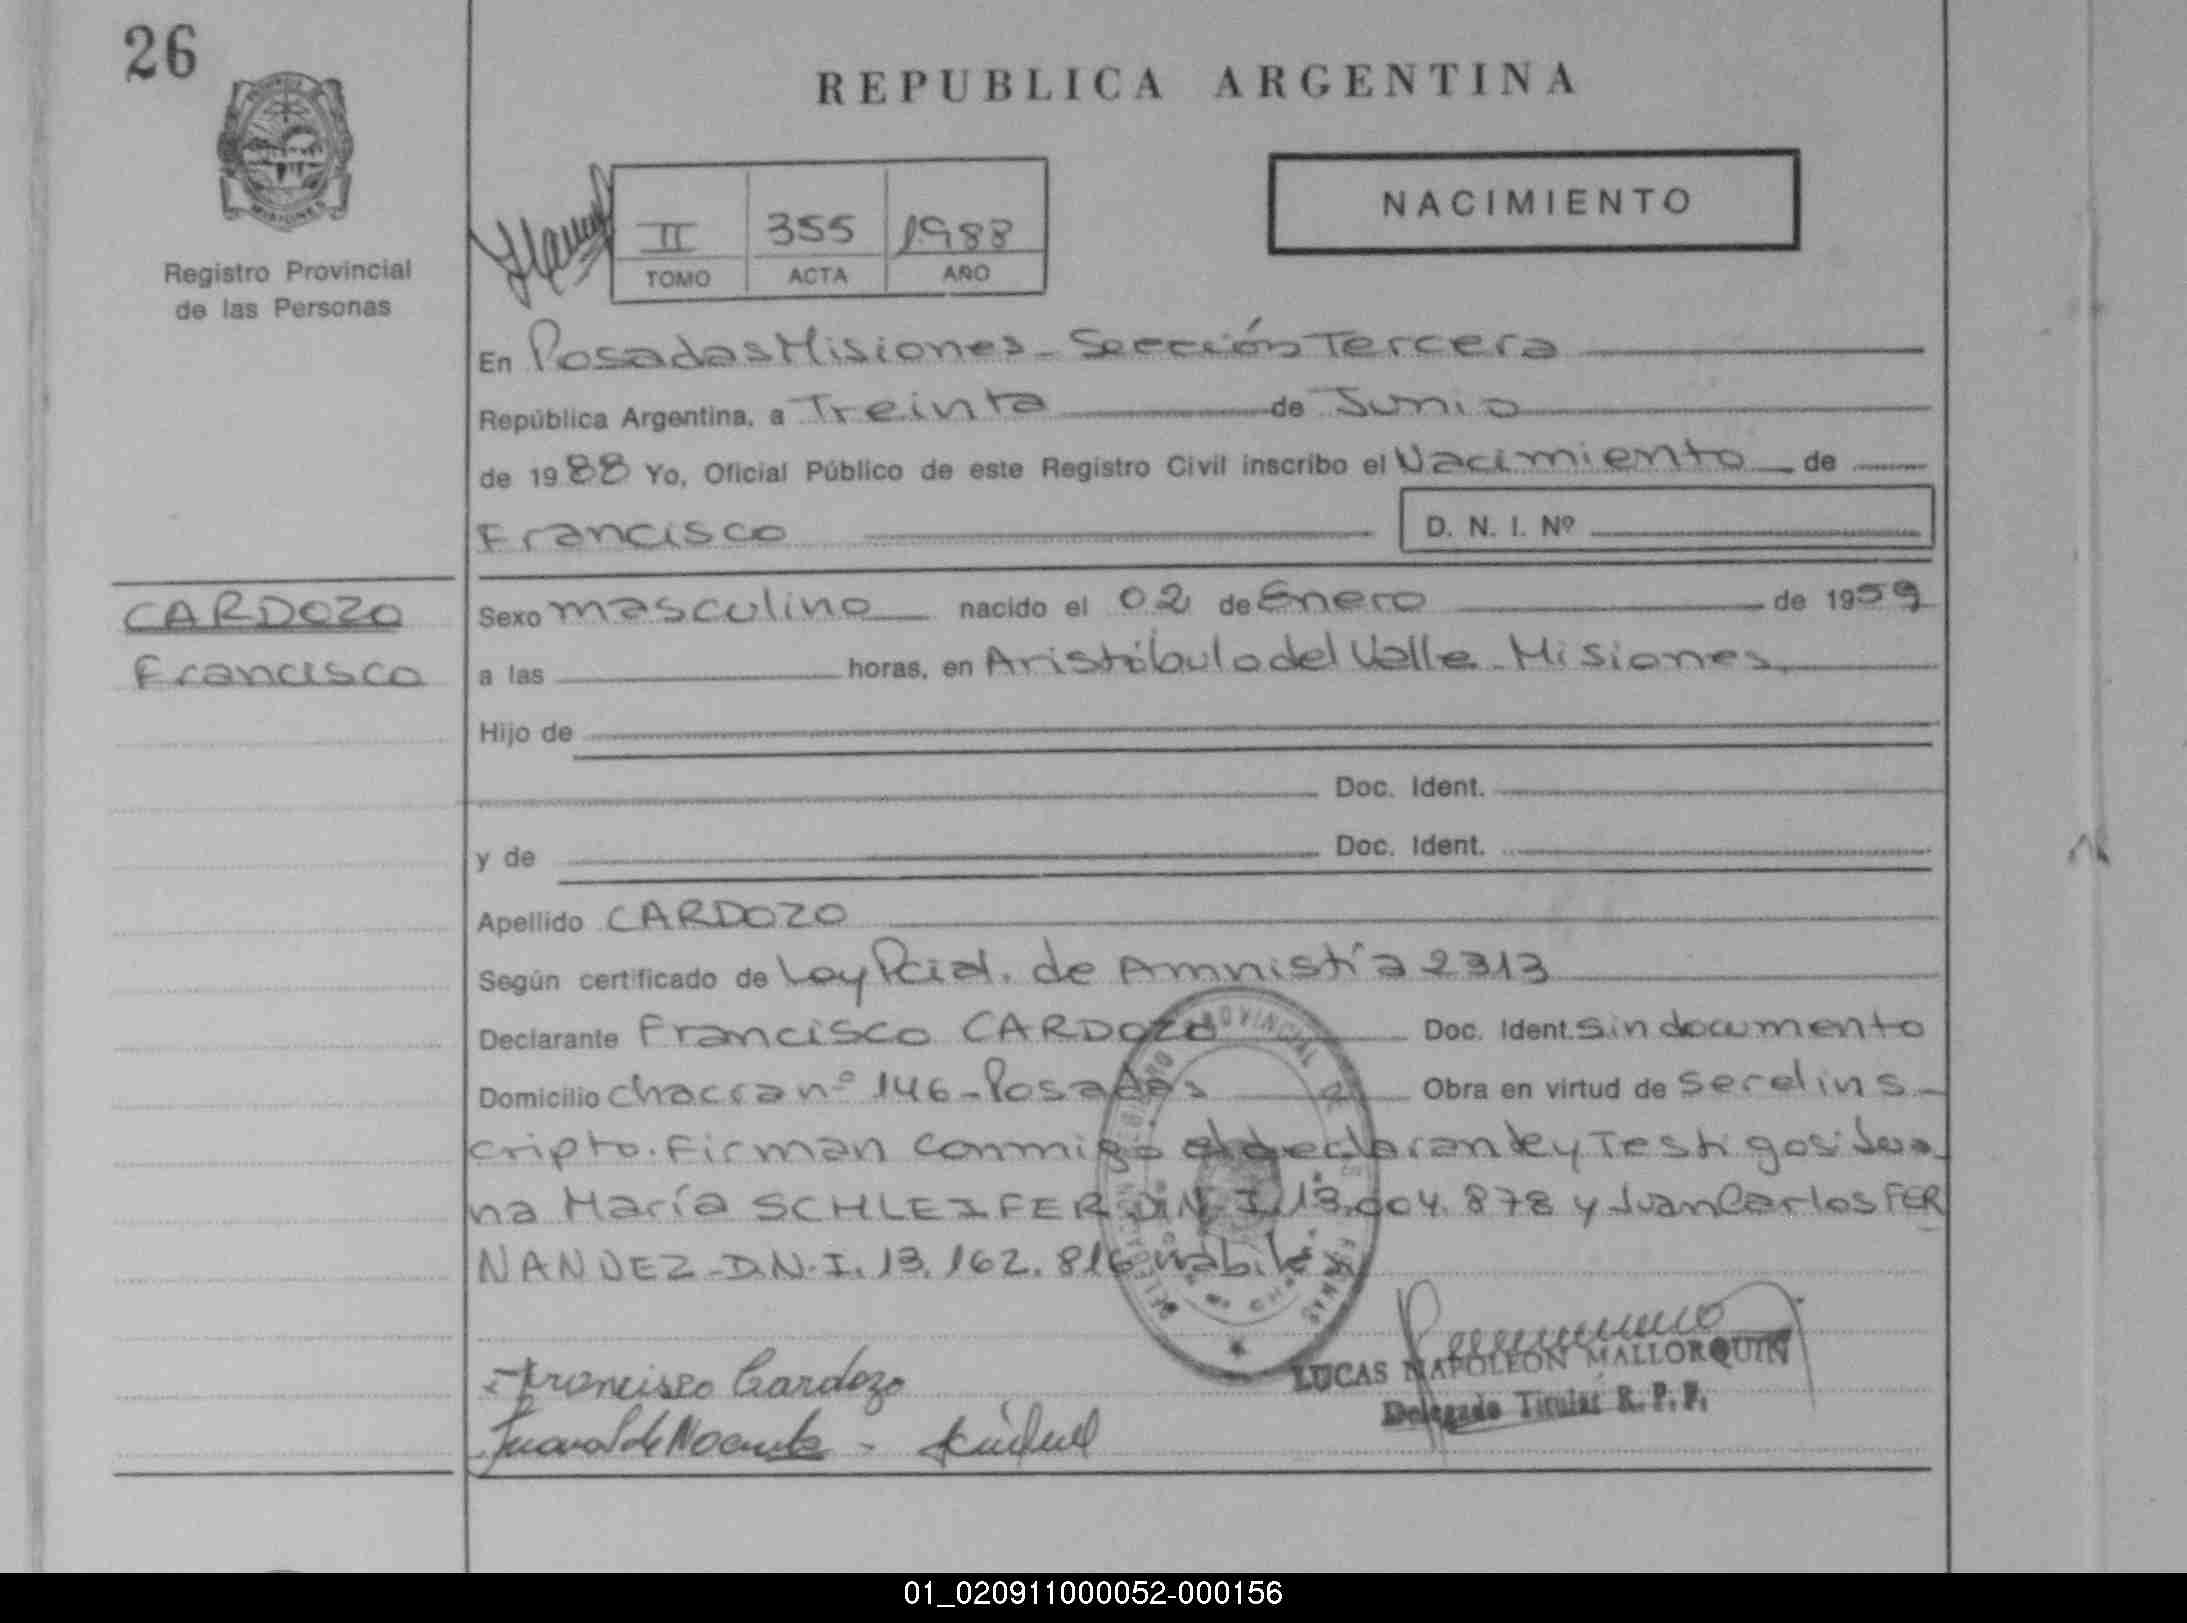 26
REPUBLICA ARGENTINA
MISIONES
Registro Provincial
de las Personas
NACIMIENTO
II 355 1988
TOMO ACTA AÑO
En Posadas Misiones - Sección Tercera
República Argentina, a Treinta de Junio
de 1988 Yo, Oficial Público de este Registro Civil inscribo el Nacimiento de
Francisco D. N. I. Nº
CARDOZO
Francisco
Sexo masculino nacido el 02 de Enero de 1959
a las horas, en Aristóbulo del Valle - Misiones
Hijo de
Doc. Ident.
y de Doc. Ident.
Apellido CARDOZO
Según certificado de Ley Pcial. de Amnistía 2313
Declarante Francisco CARDOZO Doc. Ident. sin documento
Domicilio chacra nº 146 - Posadas Obra en virtud de ser el ins-
cripto. Firman conmigo el declarante y Testigos: Jua-
na María SCHLEIFER D.N.I. 13.004.878 y Juan Carlos FER
NANDEZ - D.N.I. 13.162.816 hábiles
Francisco Cardozo
LUCAS NAPOLEON MALLORQUIN
Delegado Titular R. P. P.
01_020911000052-000156